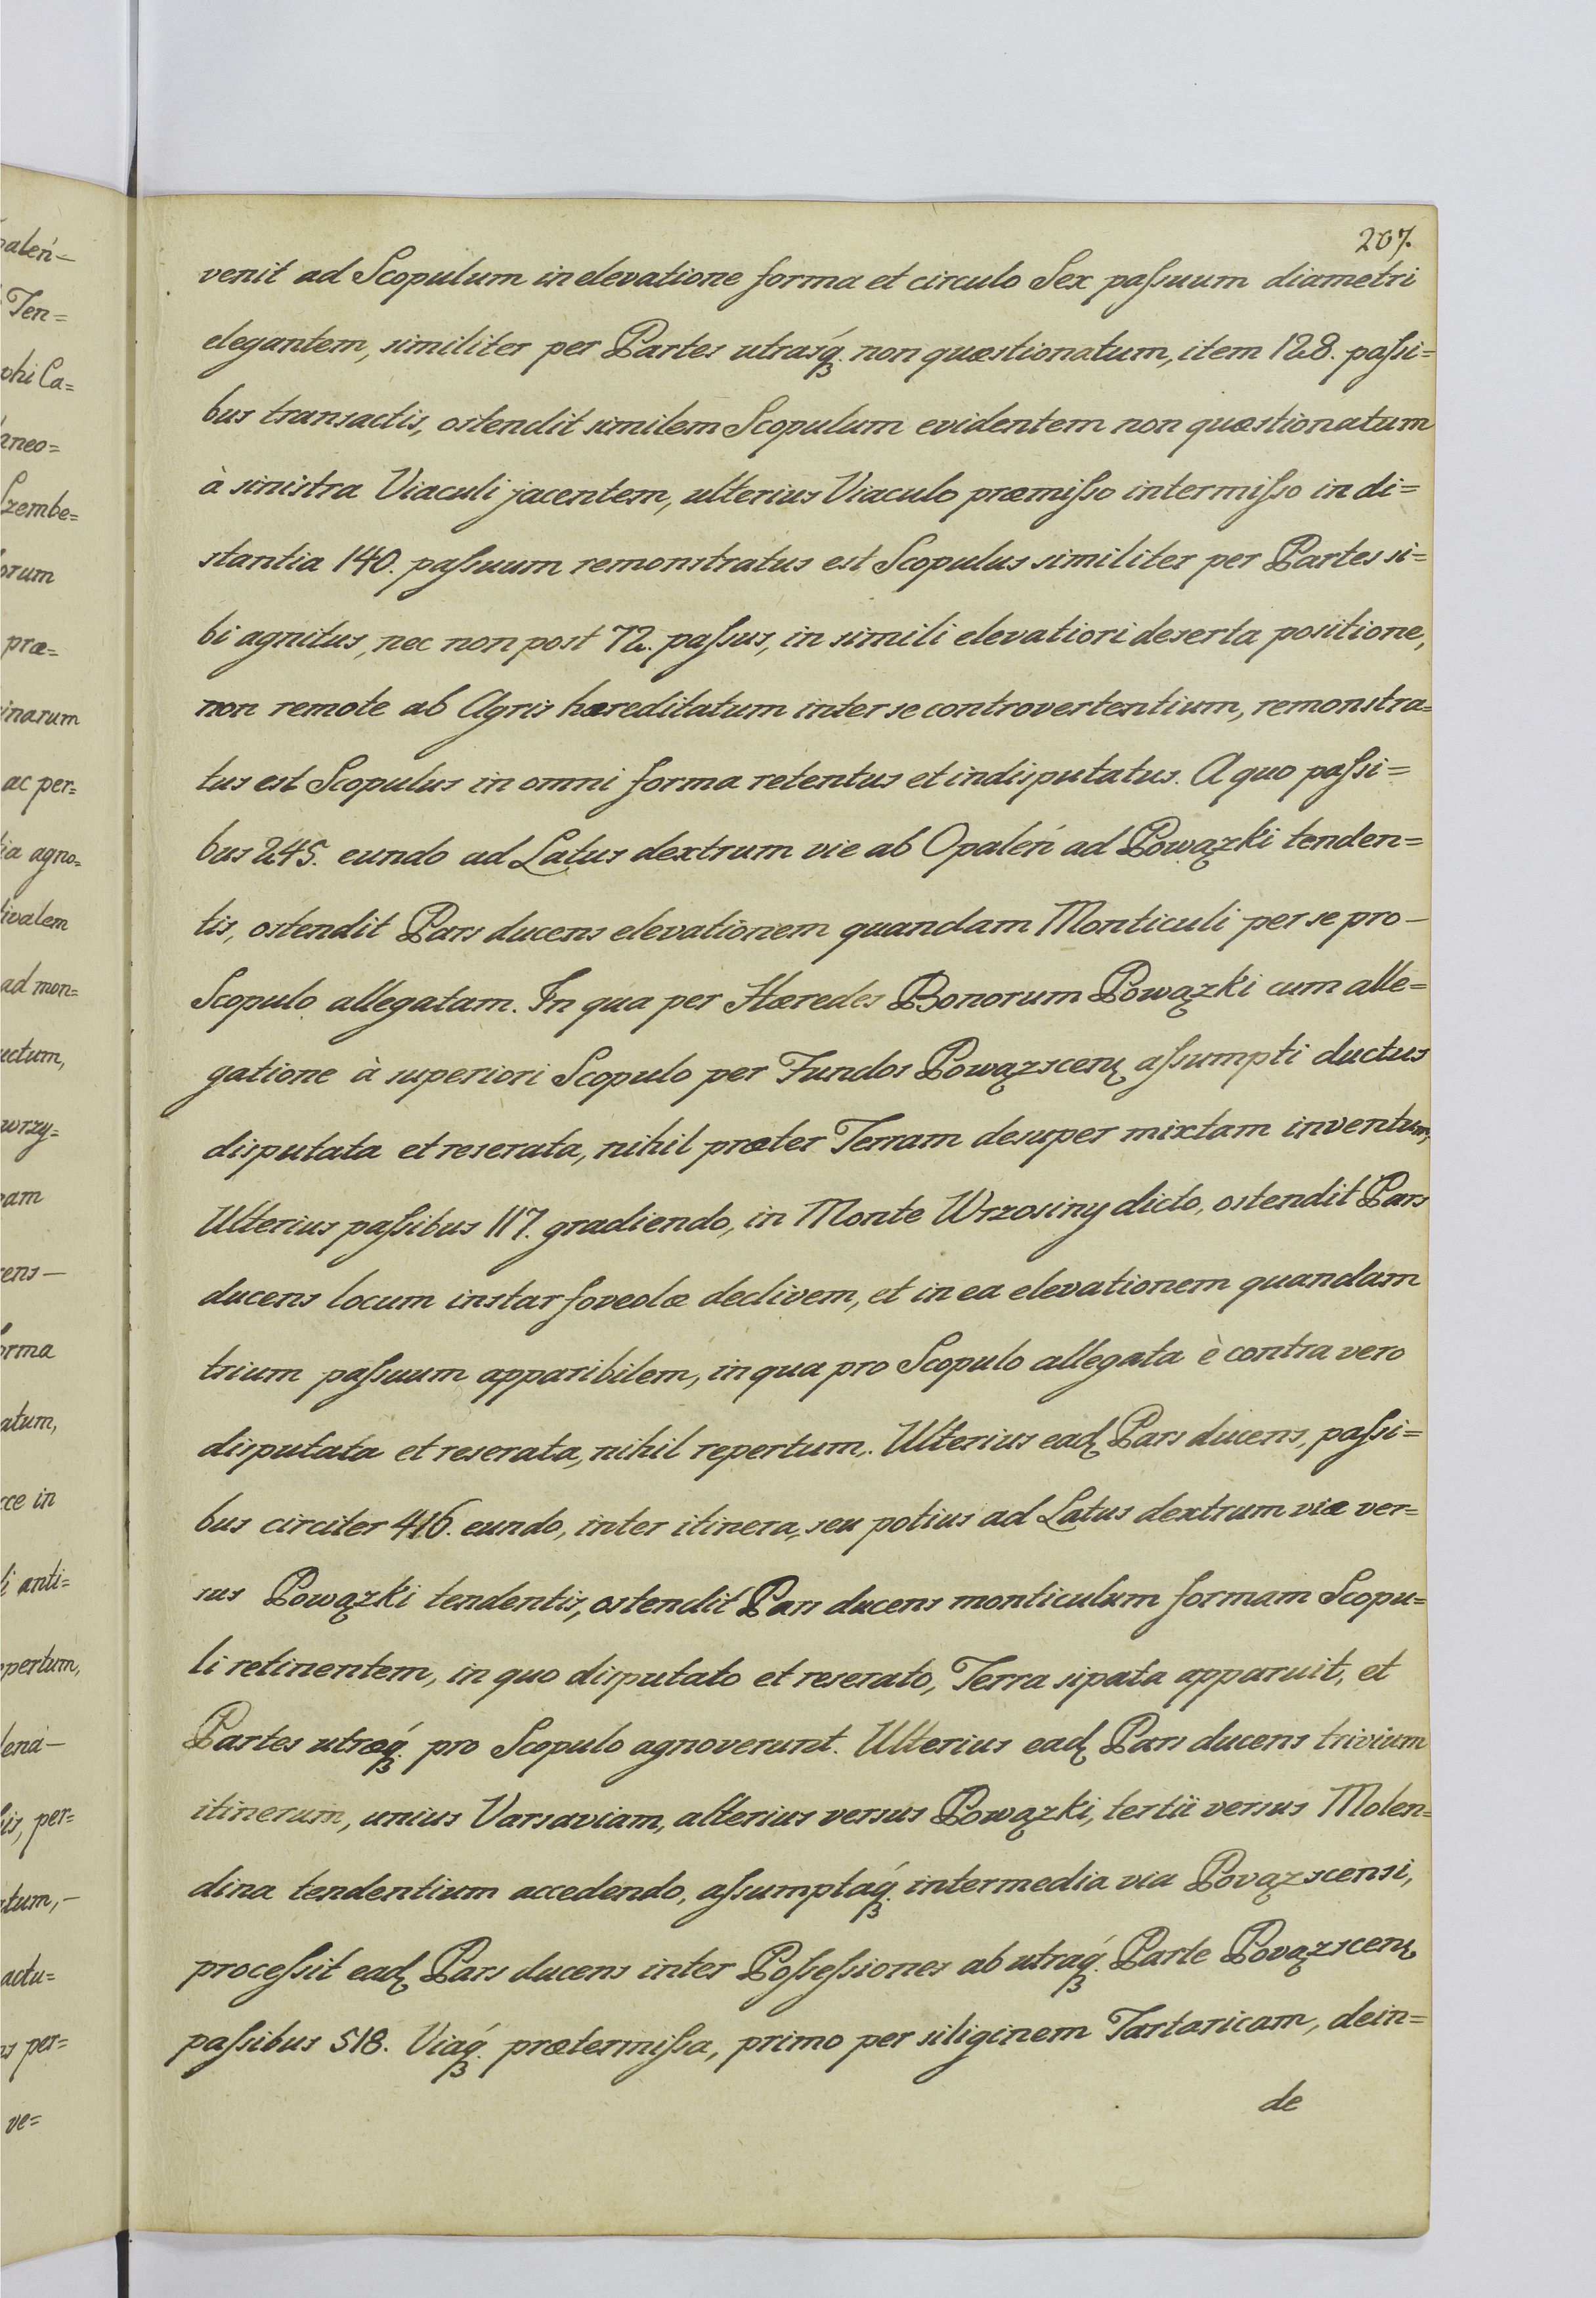 207.
venit ad Scopulum in elevatione forma et circulo Sex paſsuum diametri
elegantem, similiter per Partes utrasq́ꝫ. non quæstionatum, item 128. paſsi=
bus transactis, ostendit similem Scopulum evidentem non quæstionatum
à sinistra Viaculi jacentem, ulterius Viaculo præmiſso intermiſso in di=
stantia 140. paſsuum remonstratus est Scopulus similiter per Partes si=
bi agnitus, nec non post 72. paſsus, in simili elevatiori deserta positione,
non remote ab Agris hæreditatum inter se controvertentium, remonstra=
tus est Scopulus in omni forma retentus et indisputatus. A quo paſsi=
bus 245. eundo ad Latus dextrum vie ab Opaleń ad Powązki tenden=
tis, ostendit Pars ducens elevationem quandam Monticuli per se pro-
Scopulo allegatam. In qua per Hæredes Bonorum Powązki cum alle=
gatione à superiori Scopulo per Fundos Powązscenꝫ aſsumpti ductus
disputata et reserata, nihil præter Terram desuper mixtam inventum,
Ulterius paſsibus 117. gradiendo, in Monte Wrzosiny dicto, ostendit Pars
ducens locum instar foveolæ declivem, et in ea elevationem quandam
trium paſsuum apparibilem, in qua pro Scopulo allegata è contra vero
disputata et reserata, nihil repertum,. Ulterius eadꝫ Pars ducens, paſsi=
bus circiter 416. eundo, inter itinera, seu potius ad Latus dextrum viæ ver=
sus Powązki tendentis, ostendit Pars ducens monticulum formam Scopu=
li retinentem, in quo disputato et reserato, Terra sipata apparuit, et
Partes utræq́ꝫ. pro Scopulo agnoverunt. Ulterius eadꝫ Pars ducens trivium
itinerum, unius Varsaviam, alterius versus Powązki, tertii versus Molen=
dina tendentium accedendo, aſsumptaq́ꝫ. intermedia via Povązscensi,
proceſsit eadꝫ Pars ducens inter Poſseſsiones ab utraq́ꝫ. Parte Povązscenꝫ
paſsibus 518. Viaq́ꝫ. prætermiſsa, primo per siliginem Tartaricam, dein=
de